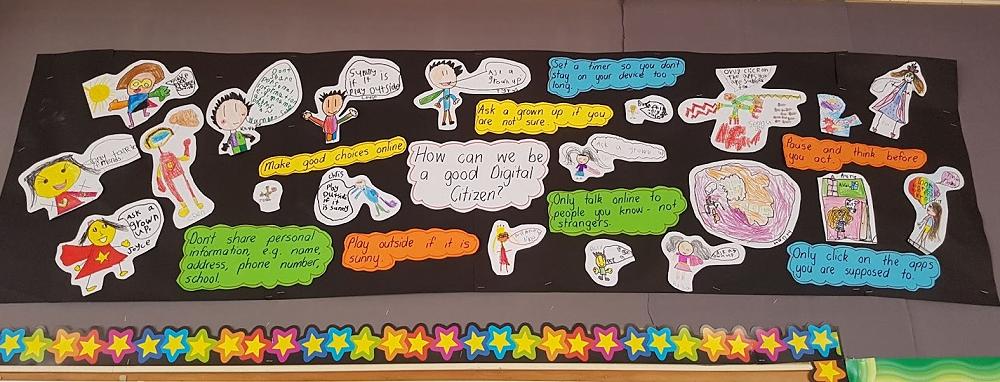 How can we be
a good Digital
Citizen?
Set a timer so you dont
stay on your device too
long.
Ask a grown up if you
are not sure.
Make good choices online
Only talk online to
people you know - not
strangers.
Pause and think before
you act.
Don't share personal
information, e.g. name,
address, phone number,
school.
Play outside if it is
sunny.
Only click on the apps
you are supposed to.
Sunny
if it is
play outside
Ask a
grown up
Ask a
grown
up.
Joyce
chris
Play
outside
if it is
sunny
only click on
the apps you
Ask a grown up